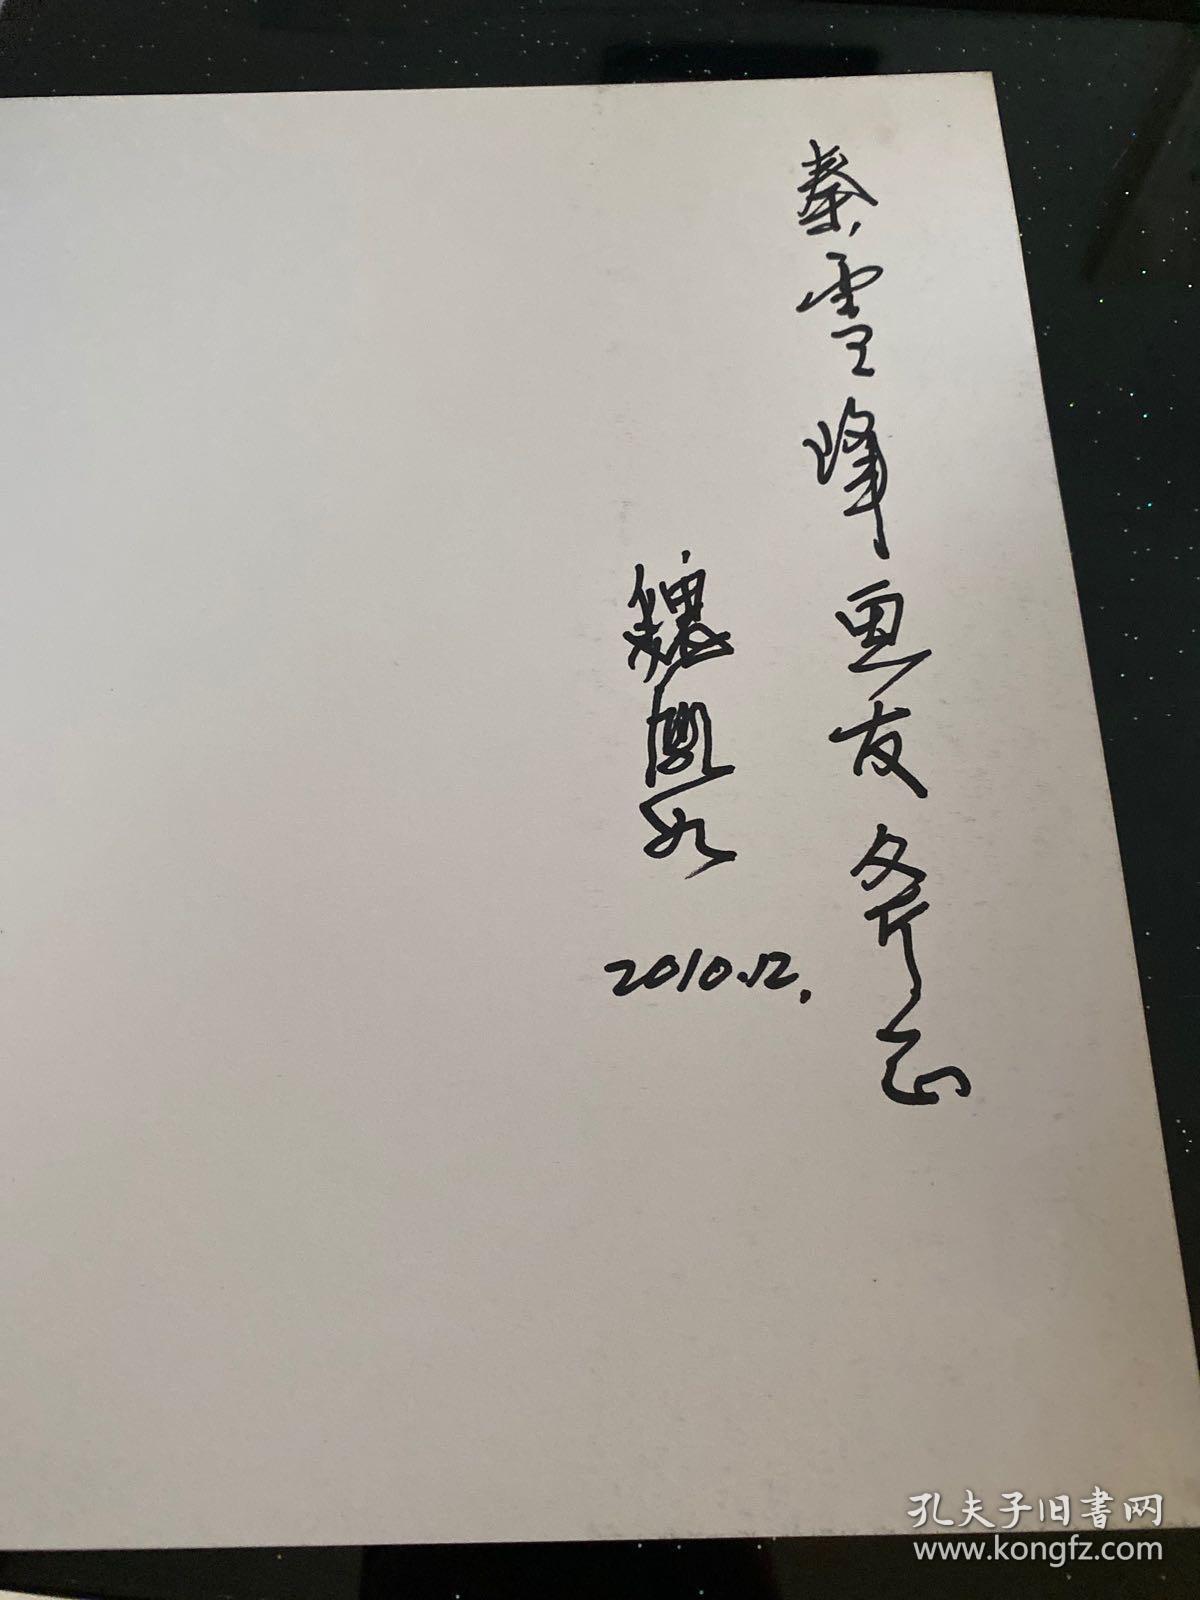 秦雪峰画友斧正
魏
2010.12.
孔夫子旧書网
www.kongfz.com